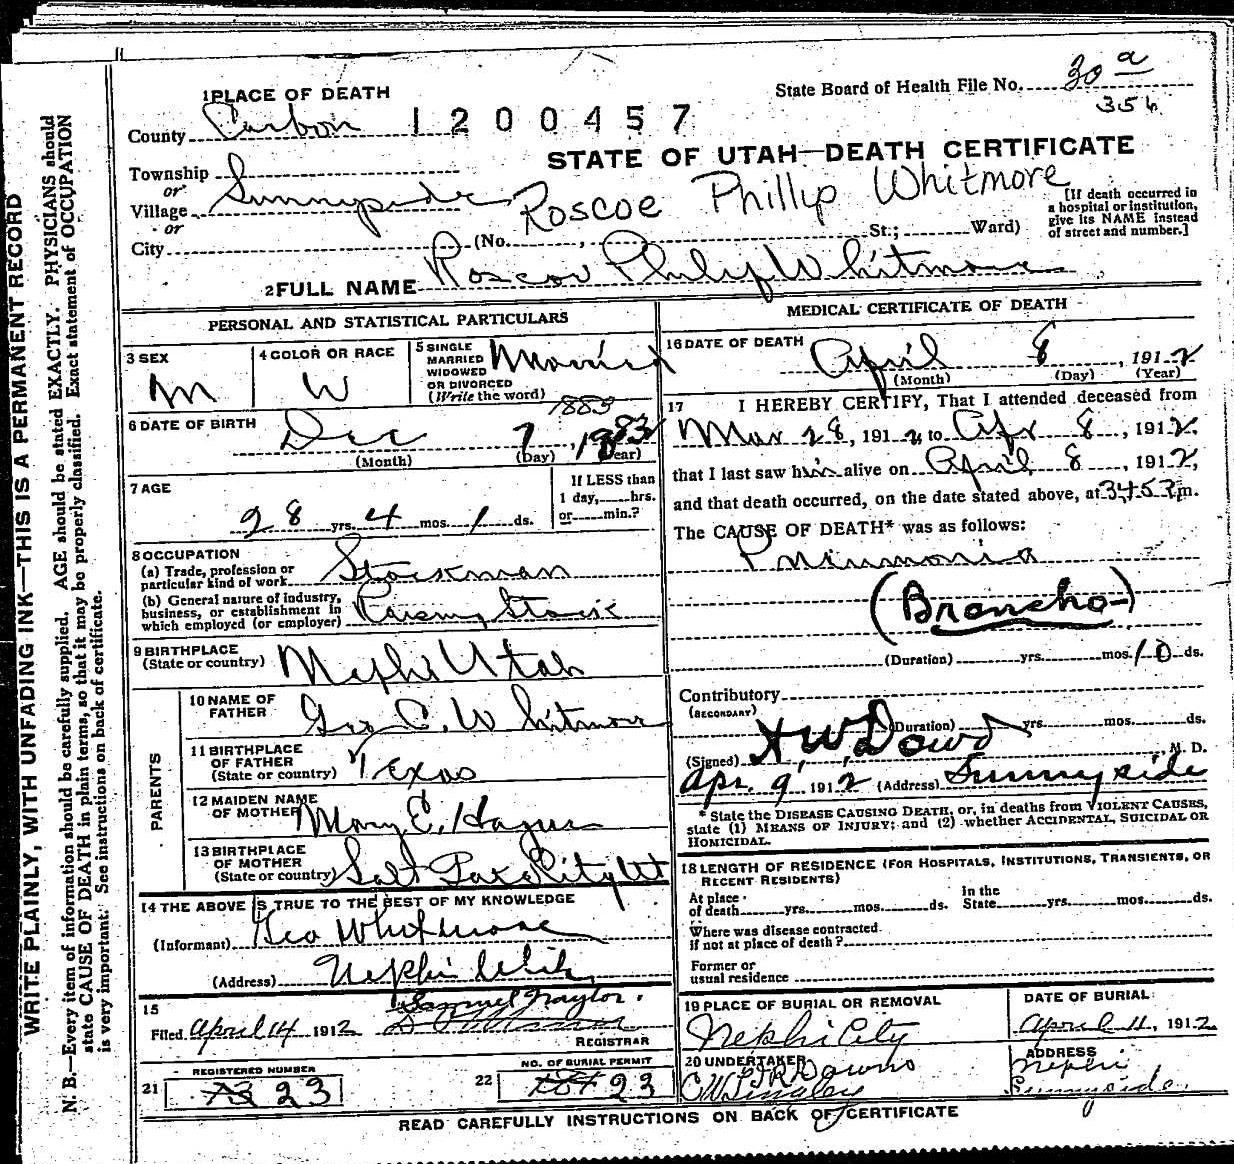 WRITE PLAINLY, WITH UNFADING INK—THIS IS A PERMANENT RECORD
N. B.—Every item of information should be carefully supplied. AGE should be stated EXACTLY. PHYSICIANS should
state CAUSE OF DEATH in plain terms, so that it may be properly classified. Exact statement of OCCUPATION
is very important. See instructions on back of certificate.
1 PLACE OF DEATH
State Board of Health File No. 30 a
356
County Carbon 1200457
STATE OF UTAH—DEATH CERTIFICATE
Township
or
Village Sunnyside
or
City
Roscoe Phillip Whitmore
(No. , St.; Ward)
[If death occurred in
a hospital or institution,
give its NAME instead
of street and number.]
2 FULL NAME Roscoe Philip Whitmore
PERSONAL AND STATISTICAL PARTICULARS
3 SEX
M
4 COLOR OR RACE
W
5 SINGLE
MARRIED
WIDOWED
OR DIVORCED
(Write the word)
Married
1883
6 DATE OF BIRTH
Dec 7, 1883
(Month) (Day) (Year)
7 AGE
28 yrs. 4 mos. 1 ds.
If LESS than
1 day, hrs.
or min.?
8 OCCUPATION
(a) Trade, profession or
particular kind of work Stockman
(b) General nature of industry,
business, or establishment in
which employed (or employer) Stock
9 BIRTHPLACE
(State or country) Nephi Utah
PARENTS
10 NAME OF
FATHER Geo C. Whitmore
11 BIRTHPLACE
OF FATHER
(State or country) Texas
12 MAIDEN NAME
OF MOTHER Mary E.
13 BIRTHPLACE
OF MOTHER
(State or country) Salt Lake City Ut
14 THE ABOVE IS TRUE TO THE BEST OF MY KNOWLEDGE
(Informant) Geo Whitmore
(Address) Nephi Utah
15
Samuel Naylor.
Filed April 14 1912
REGISTRAR
REGISTERED NUMBER
21 23
NO. OF BURIAL PERMIT
22 23
MEDICAL CERTIFICATE OF DEATH
16 DATE OF DEATH
April 8, 1912
(Month) (Day) (Year)
17 I HEREBY CERTIFY, That I attended deceased from
Mar 28, 1912 to Apr 8, 1912.
that I last saw him alive on April 8, 1912,
and that death occurred, on the date stated above, at m.
The CAUSE OF DEATH* was as follows:
Pneumonia
(Broncho-)
(Duration) yrs. mos. 10 ds.
Contributory
(SECONDARY)
(Duration) yrs. mos. ds.
(Signed) H W Dowd, M. D.
Apr. 9, 1912 (Address) Sunnyside
* State the DISEASE CAUSING DEATH, or, in deaths from VIOLENT CAUSES,
state (1) MEANS OF INJURY; and (2) whether ACCIDENTAL, SUICIDAL OR
HOMICIDAL.
18 LENGTH OF RESIDENCE (FOR HOSPITALS, INSTITUTIONS, TRANSIENTS, OR
RECENT RESIDENTS)
At place
of death yrs. mos. ds.
In the
State yrs. mos. ds.
Where was disease contracted
if not at place of death?
Former or
usual residence
19 PLACE OF BURIAL OR REMOVAL
Nephi City
DATE OF BURIAL
April 11, 1912
20 UNDERTAKER
ADDRESS
Nephi
Sunnyside
READ CAREFULLY INSTRUCTIONS ON BACK OF CERTIFICATE